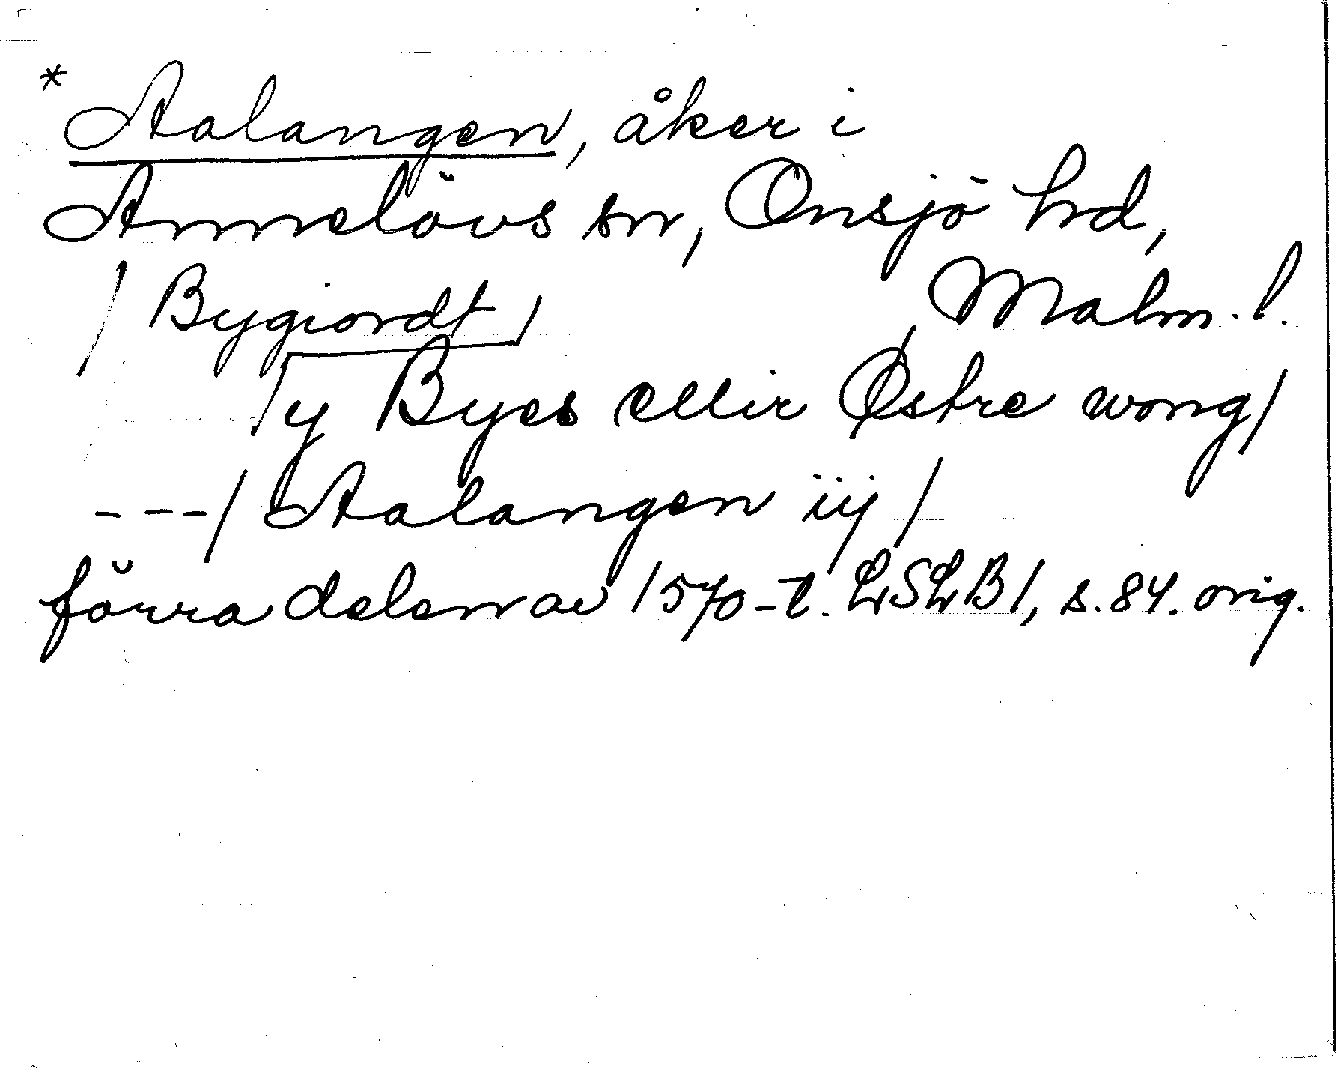 * Aalangen, åker i
Annelövs sn, Onsjö hrd,
/ Bygiordt / Malm. l.
/ y Byes ellir Østre wong /
--- / Aalangen iij /
förra delen av 1570-t. LSLB 1, s. 84. orig.